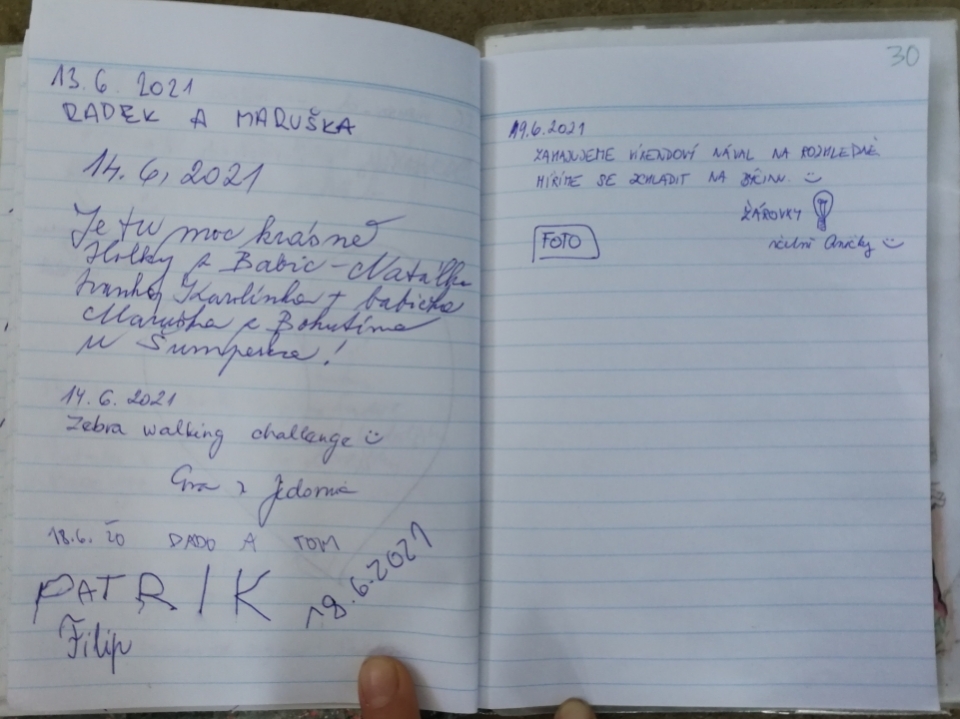 13.6. 2021
RADEK A MARUŠKA
14.6, 2021
Je tu moc krásně
Holky z Babic - Natálka
Ivanka, Karolínka + babička
Maruška z Bohutína
u Šumperka!
14.6. 2021
Zebra walking challenge
z
18.6. ŽO DADO A TOM
PATRIK
18.6.2021
Filip
30
19.6.2021
ZAHAJUJEME VÍKENDOVÝ NÁVAL NA ROZHLEDNĚ.
MÍŘÍME SE ZCHLADIT NA
ŽÁROVKY
FOTO
Aničky